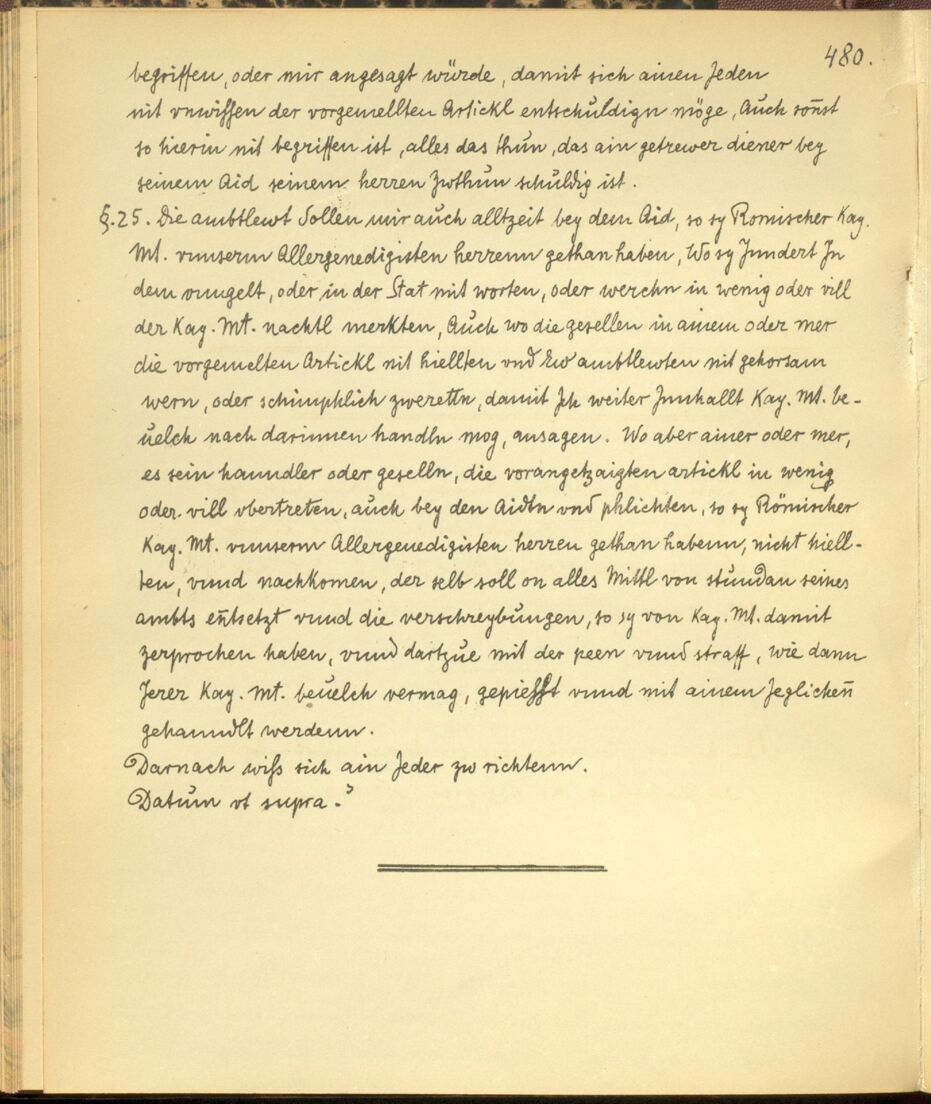 480.
begriffen, oder mir angesagt würde, damit sich ainen Jeden
nit vnwissen der vorgemellten Artickl entschuldign möge, Auch son̄st
so hierin nit begriffen ist, alles das thun, das ain getrewer diener bey
seinem Aid seinem herren Zwthun schuldig ist.
§. 25. Die ambtlewt Sollen mir auch alltzeit bey dem Aid, so sy Romischer Kay.
Mt. vnnserm Allergenedigisten herrenn gethan haben, Wo sy Jnndert Jn
dem vmngelt, oder in der Stat mit worten, oder werchn in wenig oder vill
der Kay. Mt. nachtl merkten, Auch wo die gesellen in ainem oder mer
die vorgemelten Artickl nit hiellten vnd Ew ambtlewten nit gehorsam
wern, oder schimphlich zweretln, damit Jch weiter Jnnhallt Kay. Mt. be-
uelch nach darinnen handln mog, ansagen. Wo aber ainer oder mer,
es sein hanndler oder geselln, die vorangetzaigten artickl in wenig
oder vill vbertreten, auch bey den Aidtn vnd phlichten, so sy Römischer
Kay. Mt. vnnserm Allergenedigisten herren gethan habenn, nicht hiell-
ten, vnnd nachkomen, der selb soll on alles Mittl von stundan seines
ambts en̄tsetzt vnnd die verschreybungen, so sy von Kay. Mt. damit
zerprochen haben, vnnd dartzue mit der peen vnnd straff, wie dann
Jerer Kay. Mt. beuelch vermag, gepiesst vnnd mit ainem Jeglichen̄
gehanndlt werdenn.
Darnach wiss sich ain Jeder zw richtenn.
Datum vt supra.